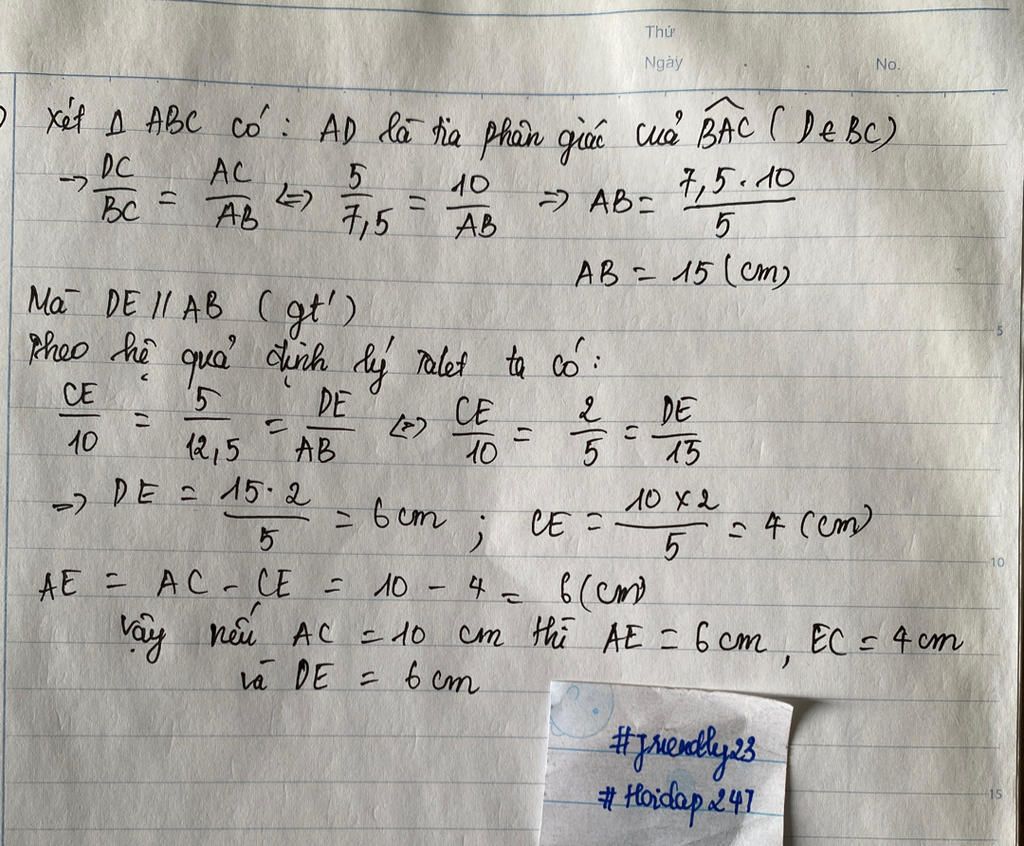 Thứ
Ngày . . No.
Xét Δ ABC có: AD là tia phân giác cuả \widehat{BAC} ( D ∈ BC)
→ DC/BC = AC/AB ⇔ 5/7,5 = 10/AB ⇒ AB = 7,5 . 10/5
AB = 15 (cm)
Mà DE // AB ( gt )
theo hệ quả định lý Talet ta có:
CE/10 = 5/12,5 = DE/AB ⇔ CE/10 = 2/5 = DE/15
5
⇒ DE = 15 . 2/5 = 6 cm ; CE = 10 × 2/5 = 4 (cm)
10
AE = AC - CE = 10 - 4 = 6 (cm)
Vậy nếu AC = 10 cm thì AE = 6 cm , EC = 4 cm
và DE = 6 cm
#friendly23
#Hoidap247
15